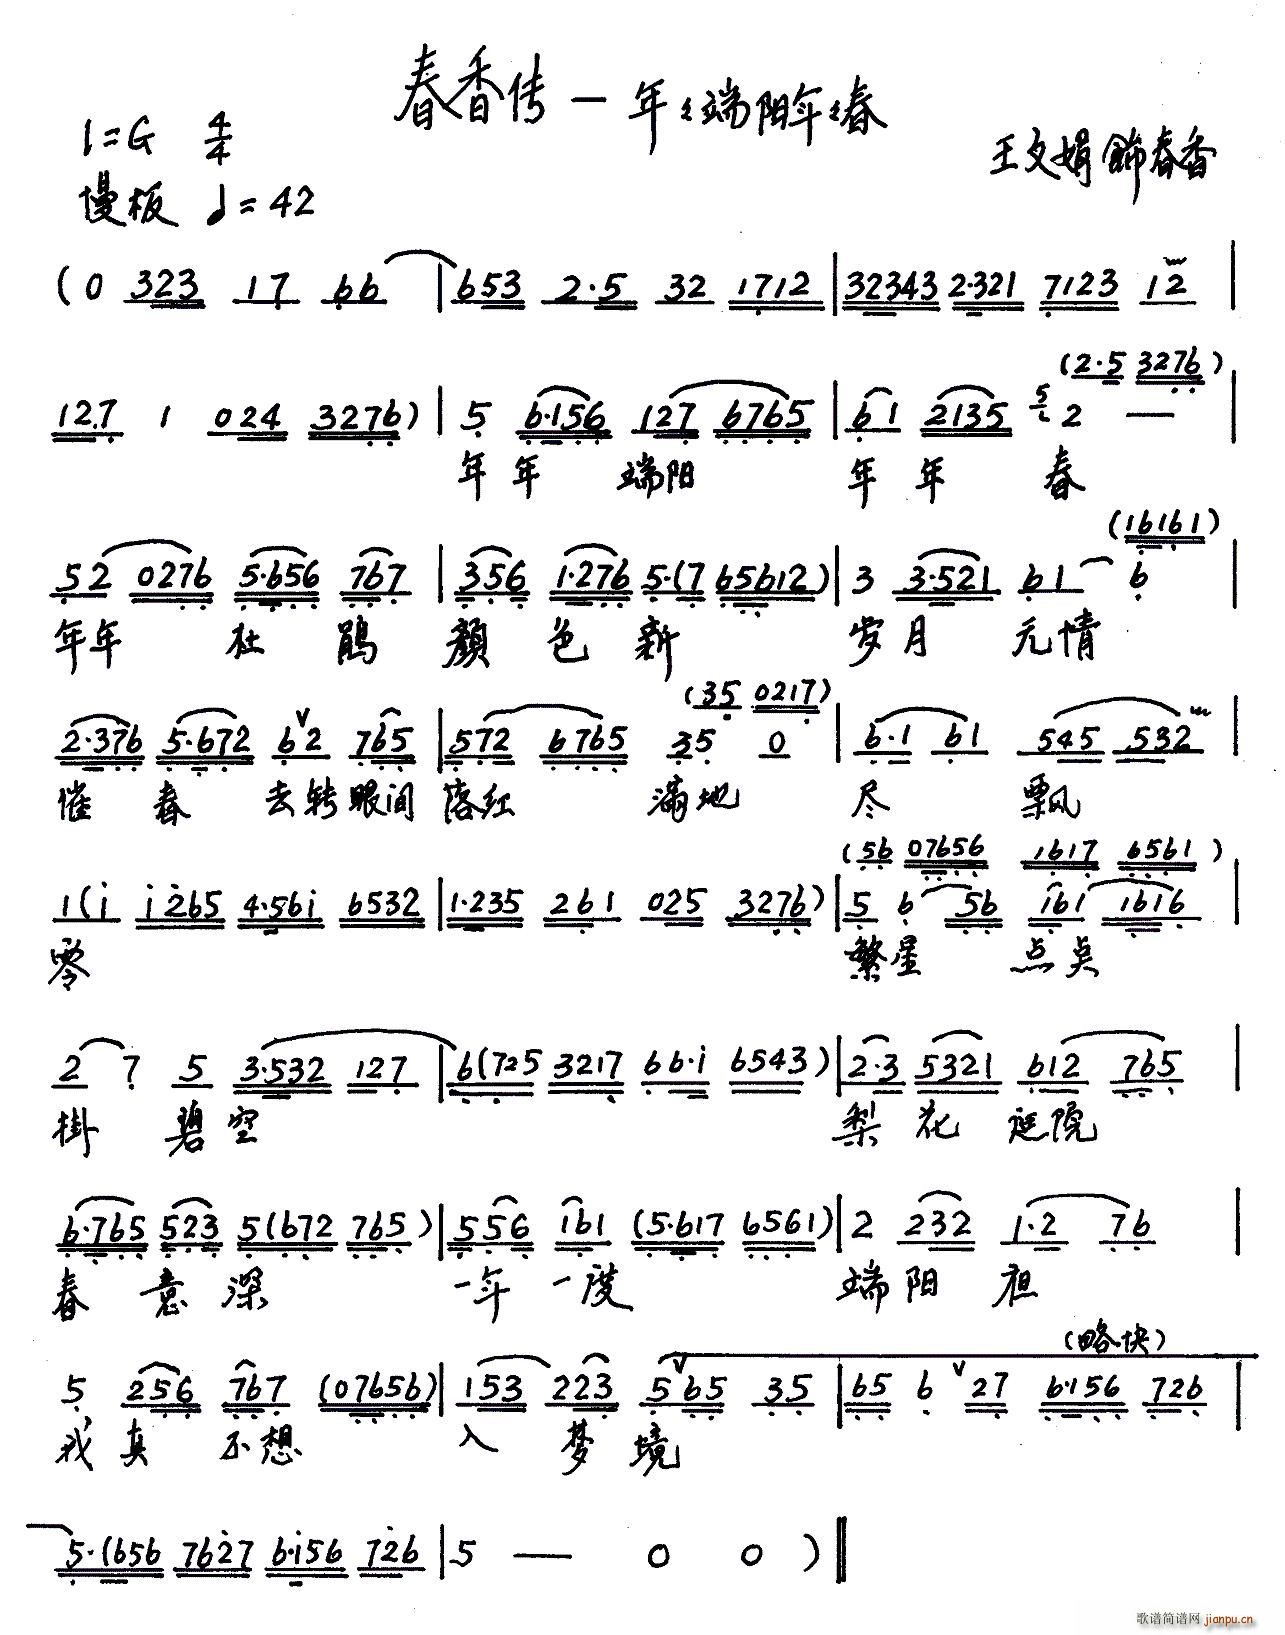 春香传 — 年々端阳年々春
1=G 4/4
王文娟 饰春香
慢板 ♩=42
(0 323 17 66 | 653 2·5 32 1712 | 32343 2·321 7123 12 |
(2·5 3276)
127 1 024 3276) | 5 6·156 127 6765 | 61 2135 5 2 — |
年年 端阳 年年 春
(16161)
52 0276 5·656 767 | 356 1·276 5·(7 65612) | 3 3·521 61 6 |
年年 杜鹃 颜色新 岁月无情
(35 0217)
2·376 5·672 62 765 | 572 6765 35 0 | 6·1 61 545 532 |
催春去转眼间 落红 满地 尽 飘
(56 07656 1617 6561)
1(i i265 4·56i 6532 | 1·235 261 025 3276) | 5 6 56 161 1616 |
零 繁星 点点
2 7 5 3·532 127 | 6(725 3217 66·i 6543) | 2·3 5321 612 765 |
掛 碧空 梨花 庭院
6·765 523 5(672 765) | 556 161 (5·617 6561) | 2 232 1·2 76 |
春意深 一年一度 端阳
(略快)
5 256 767 (07656) | 153 223 565 35 | 65 6 27 6·156 726 |
我真 不想 入梦境
5·(656 7627 6·i56 726 | 5 — 0 0 ) ‖
歌谱简谱网 jianpu.cn